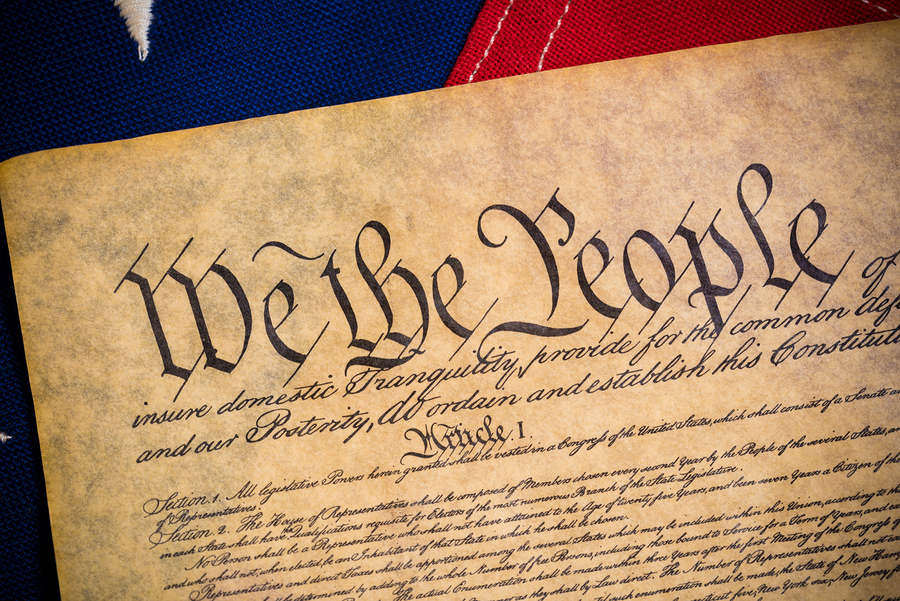 We the People of
insure domestic Tranquility, provide for the common def
and our Posterity, do ordain and establish this Constitut
Article I.
Section. 1. All legislative Powers herein granted shall be vested in a Congress of the United States, which shall consist of a Senate and
of Representatives.
Section. 2. The House of Representatives shall be composed of Members chosen every second Year by the People of the several States, an
in each State shall have the Qualifications requisite for Electors of the most numerous Branch of the State Legislature.
No Person shall be a Representative who shall not have attained to the Age of twenty five Years, and been seven Years a Citizen of the
and who shall not, when elected, be an Inhabitant of that State in which he shall be chosen.
Representatives and direct Taxes shall be apportioned among the several States which may be included within this Union, according to the
shall be determined by adding to the whole Number of free Persons, including those bound to Service for a Term of Years, and
The actual Enumeration shall be made within three Years after the first Meeting of the Congress of
as they shall by Law direct. The Number of Representatives shall not
until such enumeration shall be made, the State of New Ham
five, New York six, New Jersey